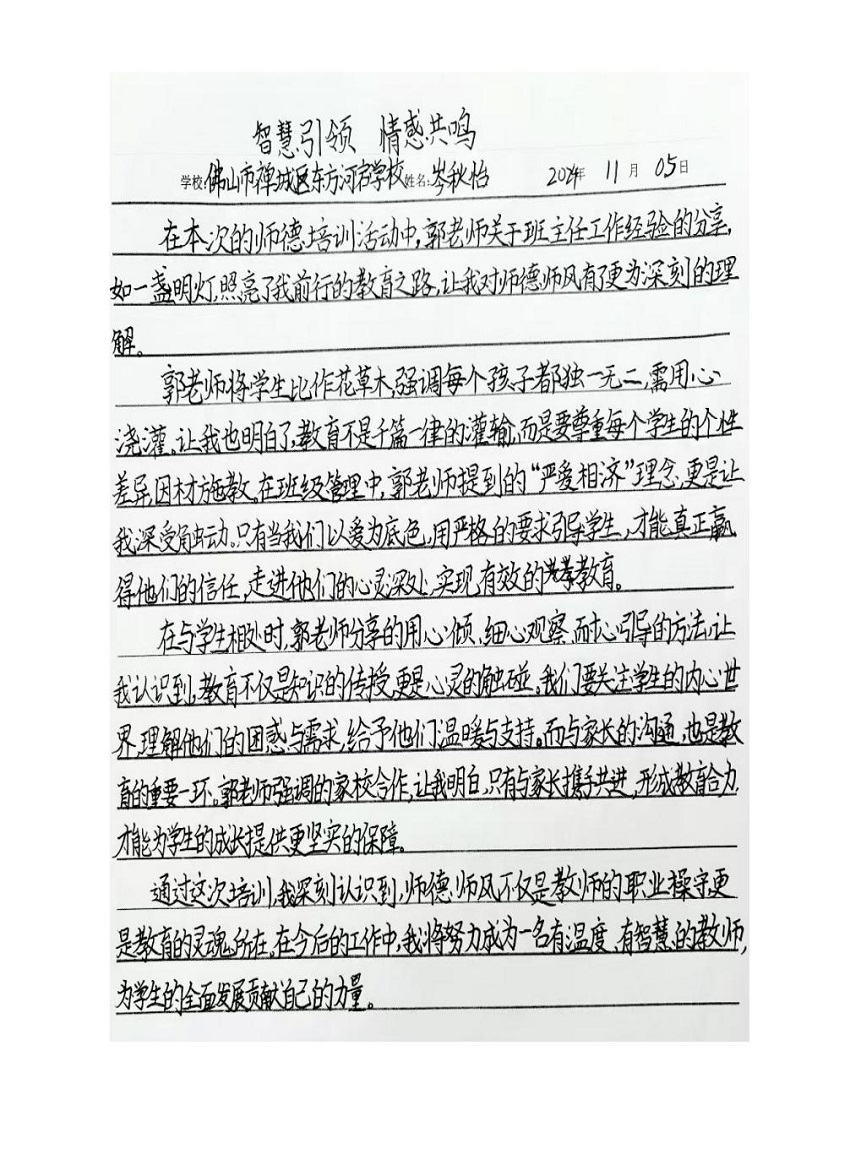 智慧引领 情感共鸣
学校:佛山市禅城区东方河宕学校 姓名:岑秋怡 2024年 11月 05日
在本次的师德培训活动中,郭老师关于班主任工作经验的分享,
如一盏明灯,照亮了我前行的教育之路,让我对师德师风有了更为深刻的理
解。
郭老师将学生比作花草木,强调每个孩子都独一无二,需用心
浇灌。让我也明白了,教育不是千篇一律的灌输,而是要尊重每个学生的个性
差异,因材施教。在班级管理中,郭老师提到的“严爱相济”理念,更是让
我深受触动。只有当我们以爱为底色,用严格的要求引导学生,才能真正赢
得他们的信任,走进他们的心灵深处,实现有效的教育。
在与学生相处时,郭老师分享的用心倾、细心观察、耐心引导的方法,让
我认识到,教育不仅是知识的传授,更是心灵的触碰。我们要关注学生的内心世
界,理解他们的困惑与需求,给予他们温暖与支持。而与家长的沟通,也是教
育的重要一环。郭老师强调的家校合作,让我明白,只有与家长携手共进,形成教育合力,
才能为学生的成长提供更坚实的保障。
通过这次培训,我深刻认识到,师德师风不仅是教师的职业操守,更
是教育的灵魂所在。在今后的工作中,我将努力成为一名有温度、有智慧的教师,
为学生的全面发展贡献自己的力量。